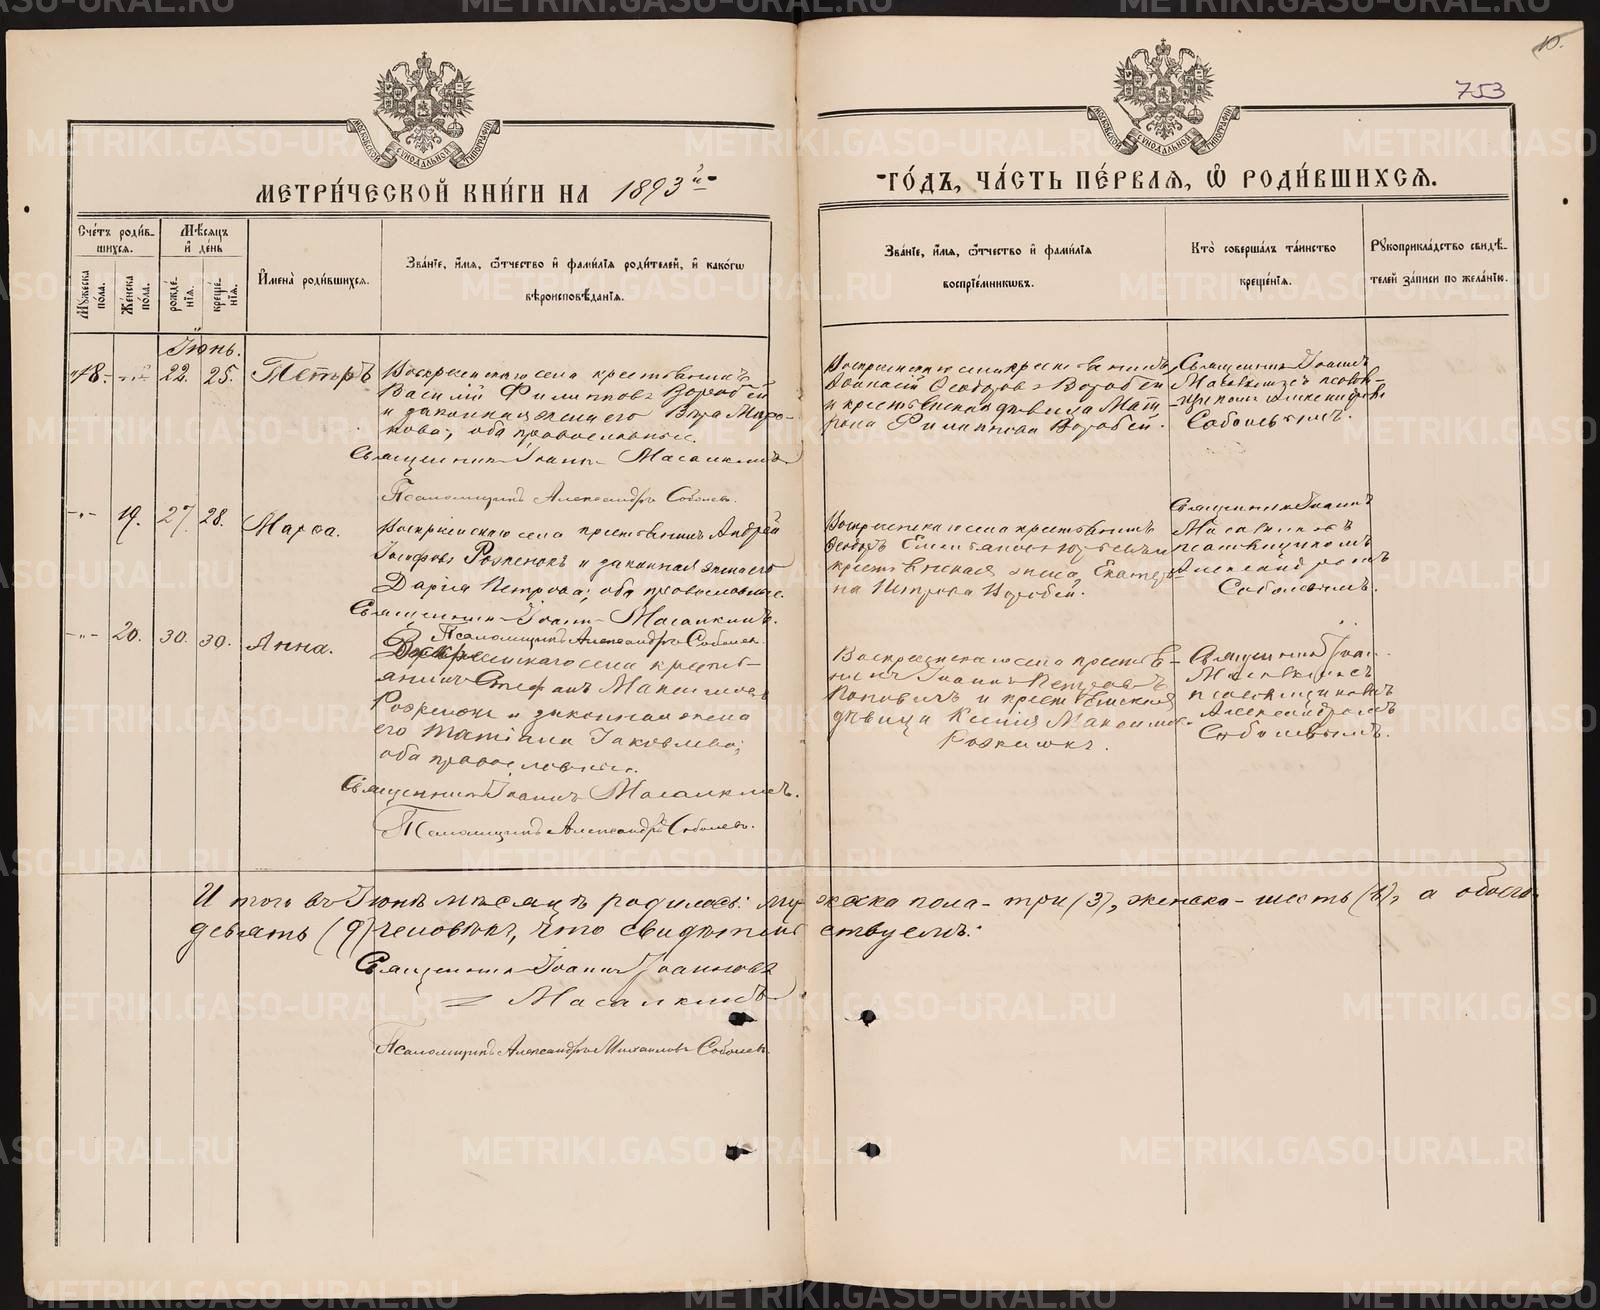 10.
753
МОСКОВСКОЙ СѴНОДАЛЬНОЙ ТИПОГРАФІИ
МОСКОВСКОЙ СѴНОДАЛЬНОЙ ТИПОГРАФІИ
МЕТРИ́ЧЕСКОЙ КНИ́ГИ НА 1893й
ГО́ДЪ, ЧА́СТЬ ПЕ́РВАѦ, Ѡ РОДИ́ВШИХСѦ.
Сче́тъ роди́в-
шихся.
Мѣ́сяцъ
и де́нь
Му́жеска
по́ла.
Же́нска
по́ла.
рожде́-
нія.
креще́-
нія.
Имена́ роди́вшихся.
Зва́ніе, и́мя, о́тчество и фами́лія роди́телей, и како́гѡ
вѣроисповѣ́данія.
Зва́ніе, и́мя, о́тчество и фами́лія
воспріе́мникѡвъ.
Кто̀ соверша́лъ та́инство
креще́нія.
Рукоприкла́дство свидѣ́-
телей за́писи по жела́нію.
Іюнь.
18. 22. 25. Петръ
Воскресенскаго села крестьянинъ
Василій Филиповъ Воробей
и законная жена его Вѣра Миро-
нова; оба православные.
Священникъ Іоаннъ Масалкинъ
Псаломщикъ Александръ Соболевъ.
Воскресенскаго села крестьянинъ
Аѳанасій Ѳеодоровъ Воробей
и крестьянская дѣвица Мат
рона Филиппова Воробей.
Священникъ Іоаннъ
Масалкинъ съ псалом-
щикомъ Александромъ
Соболевымъ.
19. 27. 28. Марѳа.
Воскресенскаго села крестьянинъ Андрей
Іосифовъ Розженюкъ и законная жена его
Дарія Петрова; оба православные.
Священникъ Іоаннъ Масалкинъ.
Псаломщикъ Александръ Соболевъ.
Воскресенскаго села крестьянинъ
Ѳеодоръ Емельяновъ
крестьянская жена Екатери-
на Петрова Воробей.
Священникъ Іоаннъ
Масалкинъ съ
псаломщикомъ
Александромъ
Соболевымъ.
20. 30. 30. Анна.
Воскресенскаго села кресть-
янинъ Стефанъ Максимовъ
Розженюкъ и законная жена
его Татіана Іаковлева;
оба православные.
Священникъ Іоаннъ Масалкинъ.
Псаломщикъ Александръ Соболевъ.
Воскресенскаго села крестья-
нинъ Іоаннъ Петровъ
Поповичъ и крестьянская
дѣвица Ксенія Максимова
Розженюкъ.
Священникъ Іоаннъ
Масалкинъ съ
псаломщикомъ
Александромъ
Соболевымъ.
И того въ Іюнѣ мѣсяцѣ родилось: мужеска пола - три (3), женска - шесть (6), а обоего
девять (9) человѣкъ, что свидѣтельствуемъ:
Священникъ Іоаннъ Іоанновъ
Масалкинъ
Псаломщикъ Александръ Михаиловъ Соболевъ.
METRIKI.GASO-URAL.RU